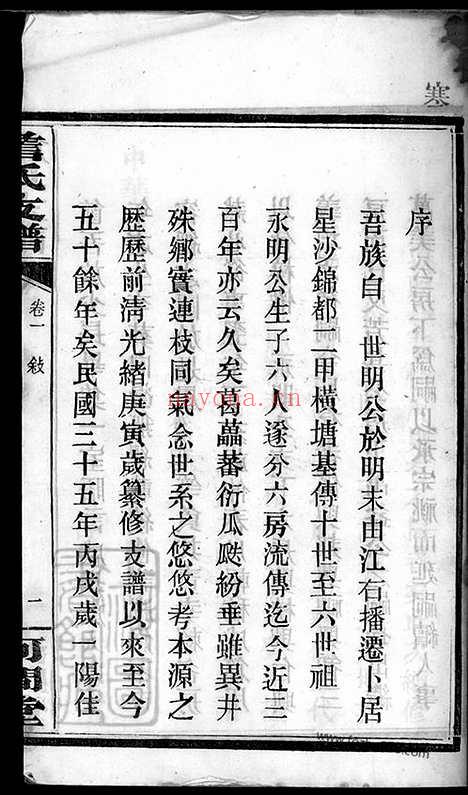 序
吾族自　世明公於明末由江右播遷卜居
星沙錦都二甲橫塘基傳十世至六世祖
永明公生子六人遂分六房流傳迄今近三
百年亦云久矣葛藟蕃衍瓜瓞紛垂雖異井
殊鄉實連枝同氣念世系之悠悠考本源之
歷歷前清光緒庚寅歲纂修支譜以來至今
五十餘年矣民國三十五年丙戌歲一陽佳
氏支譜
卷一　敍
二
河間堂
寒
nayona.cn